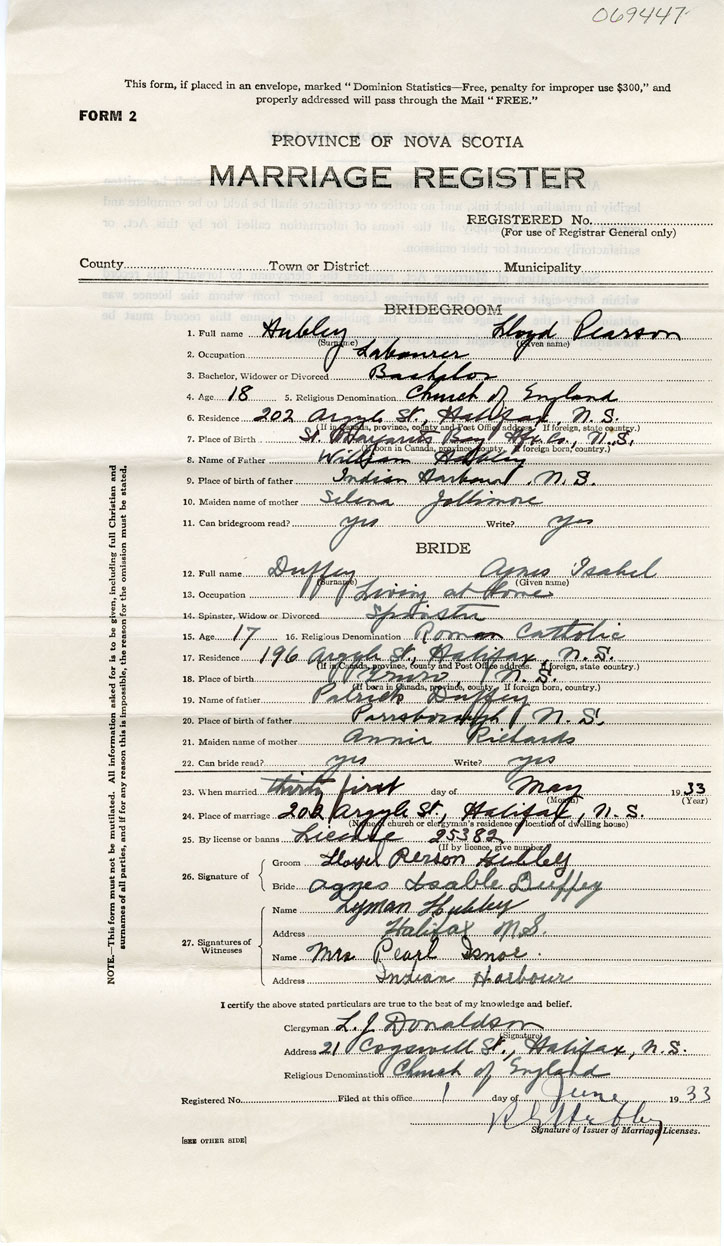 069447
This form, if placed in an envelope, marked "Dominion Statistics—Free, penalty for improper use $300," and
properly addressed will pass through the Mail "FREE."
FORM 2
PROVINCE OF NOVA SCOTIA
MARRIAGE REGISTER
REGISTERED No.
(For use of Registrar General only)
County Town or District Municipality
BRIDEGROOM
1. Full name Hubley Lloyd Pearson
(Surname) (Given name)
2. Occupation Labourer
3. Bachelor, Widower or Divorced Bachelor
4. Age 18 5. Religious Denomination Church of England
6. Residence 202 Argyle St., Halifax, N.S.
(If in Canada, province, county and Post Office address. If foreign, state country.)
7. Place of Birth St. Margarets Bay Hfx. Co., N.S.
(If born in Canada, province, county. If foreign born, country.)
8. Name of Father William Hubley
9. Place of birth of father Indian Harbour, N.S.
10. Maiden name of mother Selena Jollimore
11. Can bridegroom read? yes Write? yes
BRIDE
12. Full name Duffey Agnes Isabel
(Surname) (Given name)
13. Occupation Living at Home
14. Spinster, Widow or Divorced Spinster
15. Age 17 16. Religious Denomination Roman Catholic
17. Residence 196 Argyle St., Halifax, N.S.
(If in Canada, province, county and Post Office address. If foreign, state country.)
18. Place of birth Truro, N.S.
(If born in Canada, province, county. If foreign born, country.)
19. Name of father Patrick Duffey
20. Place of birth of father Parrsborough, N.S.
21. Maiden name of mother Annie Richards
22. Can bride read? yes Write? yes
23. When married thirty first day of May 1933
(Month) (Year)
24. Place of marriage 202 Argyle St., Halifax, N.S.
(Name of church or clergyman's residence or location of dwelling house)
25. By license or banns License 25382
(If by licence, give number)
26. Signature of
Groom Lloyd Person Hubley
Bride Agnes Isable Duffey
27. Signatures of Witnesses
Name Lyman Hubley
Address Halifax N.S.
Name Mrs Pearl Isnor.
Address Indian Harbour
I certify the above stated particulars are true to the best of my knowledge and belief.
Clergyman L. J. Donaldson
(Signature)
Address 21 Cogswell St., Halifax, N.S.
Religious Denomination Church of England
Registered No. Filed at this office 1 day of June 1933
Signature of Issuer of Marriage Licenses.
[SEE OTHER SIDE]
NOTE.—This form must not be mutilated. All information asked for is to be given, including full Christian and
surnames of all parties, and if for any reason this is impossible, the reason for the omission must be stated.